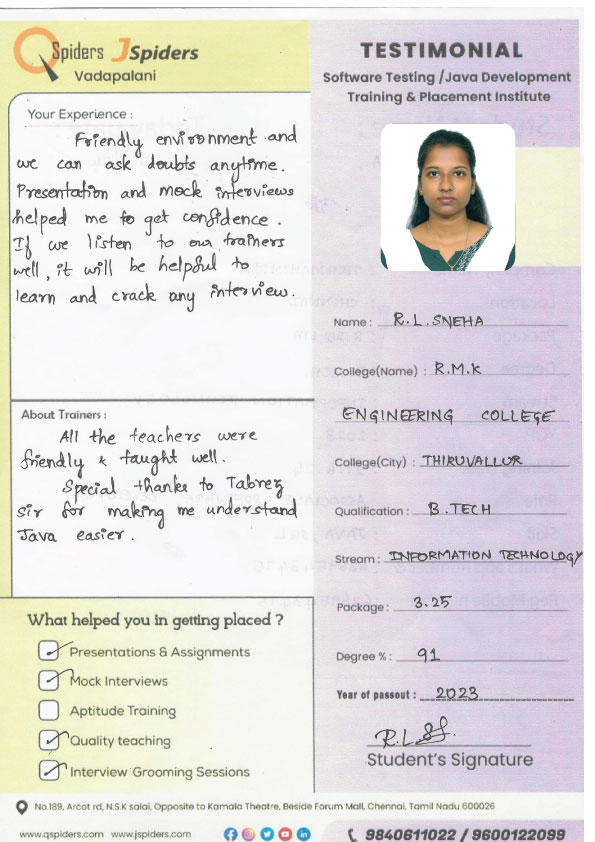 QSpiders JSpiders
Vadapalani
TESTIMONIAL
Software Testing /Java Development
Training & Placement Institute
Your Experience :
Friendly environment and
we can ask doubts anytime.
Presentation and mock interviews
helped me to get confidence.
If we listen to our trainers
well, it will be helpful to
learn and crack any interview.
About Trainers :
All the teachers were
friendly & taught well.
Special thanks to Tabrez
Sir for making me understand
Java easier.
What helped you in getting placed ?
Presentations & Assignments
Mock Interviews
Aptitude Training
Quality teaching
Interview Grooming Sessions
Name : R.L. SNEHA
College(Name) : R.M.K
ENGINEERING COLLEGE
College(City) : THIRUVALLUR
Qualification : B.TECH
Stream : INFORMATION TECHNOLOGY
Package : 3.25
Degree % : 91
Year of passout : 2023
Student's Signature
No.189, Arcot rd, N.S.K salai, Opposite to Kamala Theatre, Beside Forum Mall, Chennai, Tamil Nadu 600026
www.qspiders.com www.jspiders.com
9840611022 / 9600122099